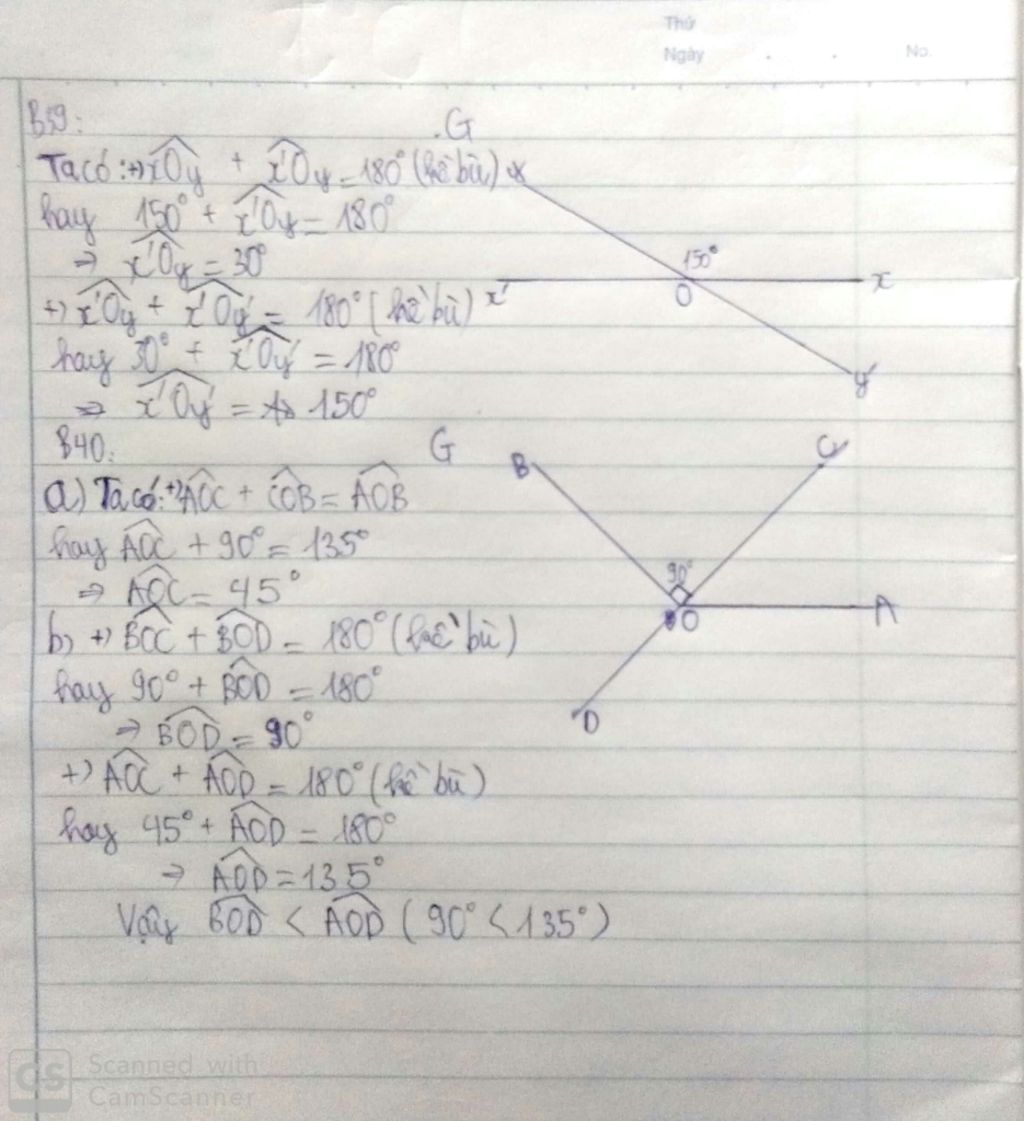 Thứ
Ngày . . No.
B39:
G
Ta có: +) xOy + x'Oy = 180° (kề bù)
hay 150° + x'Oy = 180°
⇒ x'Oy = 30°
+) x'Oy + x'Oy' = 180° (kề bù)
hay 30° + x'Oy' = 180°
⇒ x'Oy' = 150°
y
150°
x'
O
x
y'
B40:
G
a) Ta có: +) AOC + COB = AOB
hay AOC + 90° = 135°
⇒ AOC = 45°
b) +) BOC + BOD = 180° (kề bù)
hay 90° + BOD = 180°
⇒ BOD = 90°
+) AOC + AOD = 180° (kề bù)
hay 45° + AOD = 180°
⇒ AOD = 135°
Vậy BOD < AOD (90° < 135°)
B
C
90°
O
A
D
CS
Scanned with
CamScanner